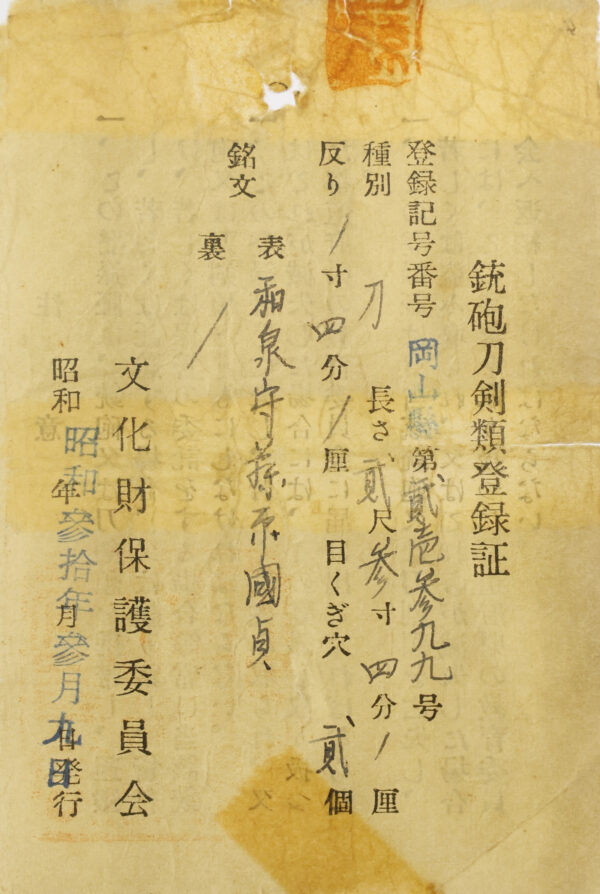 銃砲刀剣類登録証
登録記号番号 岡山縣第貳壱参九九号
種別 刀 長さ 貳尺参寸四分/厘
反り/寸四分/厘 目くぎ穴 貳個
銘文 表 和泉守藤原國貞
裏 /
文化財保護委員会
昭和 年 月 日発行
昭和參拾年參月九日